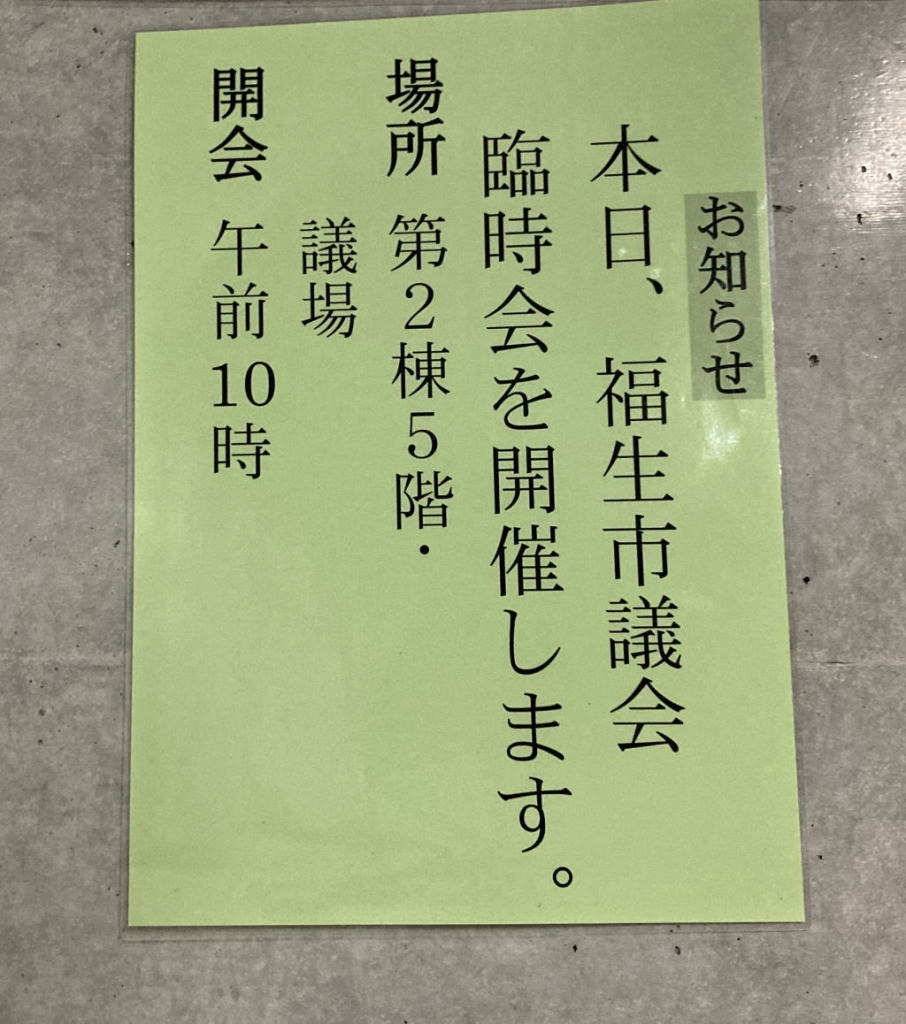 お知らせ
本日、福生市議会
臨時会を開催します。
場所 第2棟5階・
議場
開会 午前10時